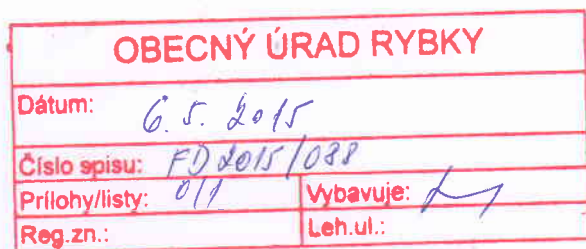 OBECNÝ ÚRAD RYBKY
Dátum: 6.5.2015
Číslo spisu: FD2015/088
Prílohy/listy: 0/1 Vybavuje:
Reg.zn.: Leh.ul.: